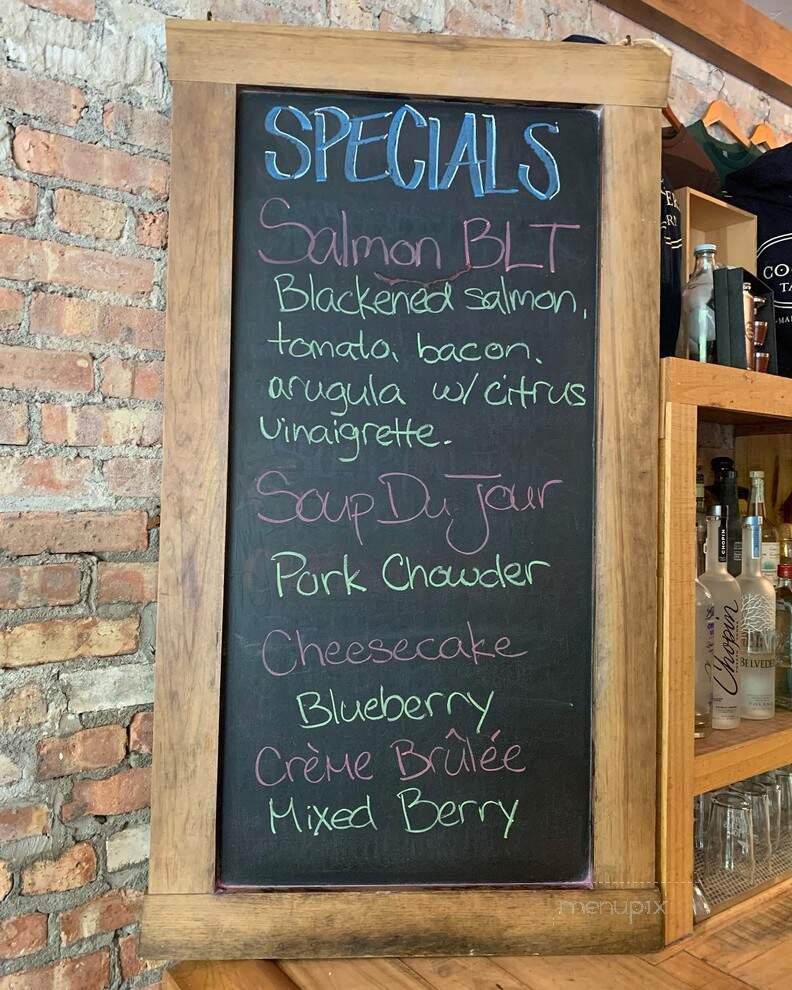 SPECIALS
Salmon BLT
Blackened salmon,
tomato, bacon,
arugula w/ citrus
vinaigrette.
Soup Du Jour
Pork Chowder
Cheesecake
Blueberry
Crème Brûlée
Mixed Berry
CHOPIN
Chopin
BELVEDE
CO
TA
menupix